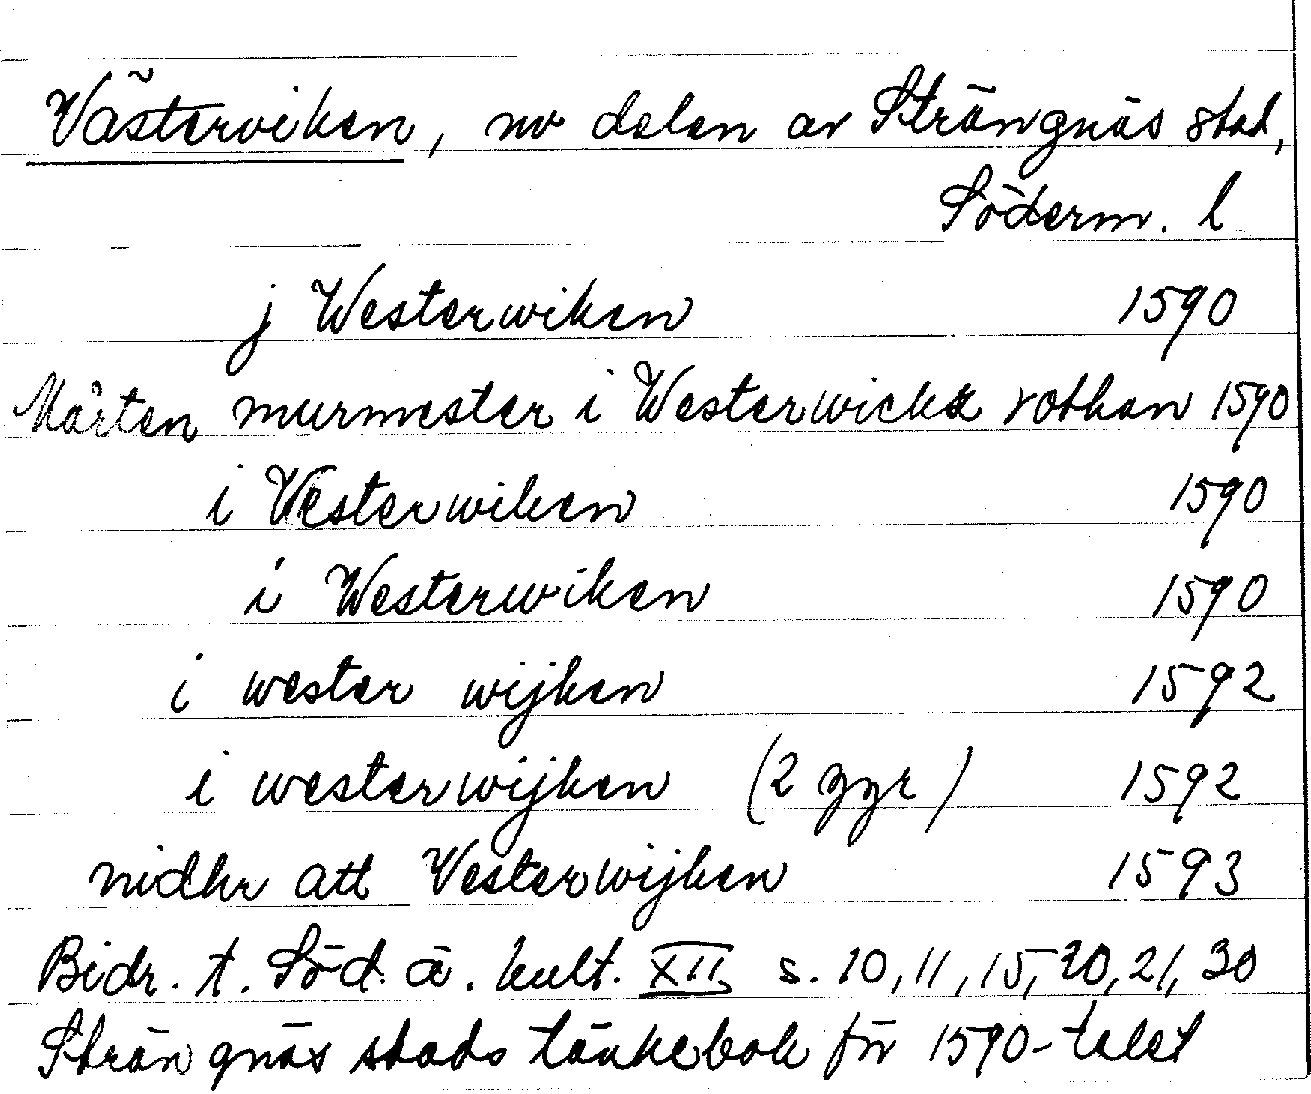 Västerviken, nv delen av Strängnäs stad,
Söderm. l
j Westerwiken 1590
Mårten murmester i Westerwicks rothan 1590
i Vesterwiken 1590
i Westerwiken 1590
i wester wijken 1592
i westerwijken (2 ggr) 1592
nidhr att Vesterwijken 1593
Bidr. t. Söd. ä. kult. XII s. 10, 11, 15, 20, 21, 30
Strängnäs stads tänkebok för 1590-talet